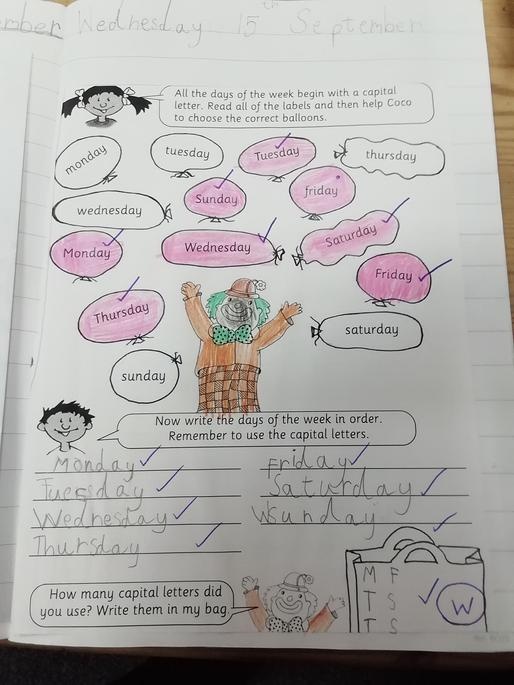 mber Wednesday 15th September
All the days of the week begin with a capital
letter. Read all of the labels and then help Coco
to choose the correct balloons.
monday
tuesday
Tuesday
thursday
wednesday
Sunday
friday
Monday
Wednesday
Saturday
Friday
Thursday
saturday
sunday
Now write the days of the week in order.
Remember to use the capital letters.
Monday
Tuesday
Wednesday
Thursday
Friday
Saturday
Sunday
How many capital letters did
you use? Write them in my bag.
M F
T S W
T S